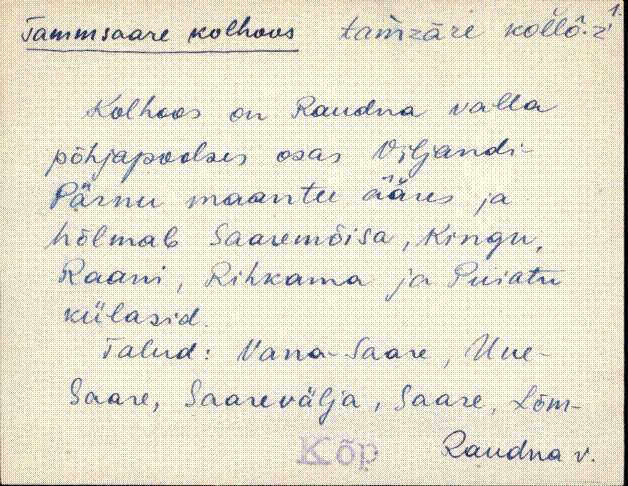 Tammsaare kolhoos tam̀zāre kol̆l̆ō·z̀ 1.
Kolhoos on Raudna valla
põhjapoolses osas Viljandi-
Pärnu maantee ääres ja
hõlmab Saaremõisa, Kingu,
Raani, Rihkama ja Puiatu
külasid.
Talud: Vana-Saare, Uue-
Saare, Saarevälja, Saare, Lõm-
Kõp Raudna v.